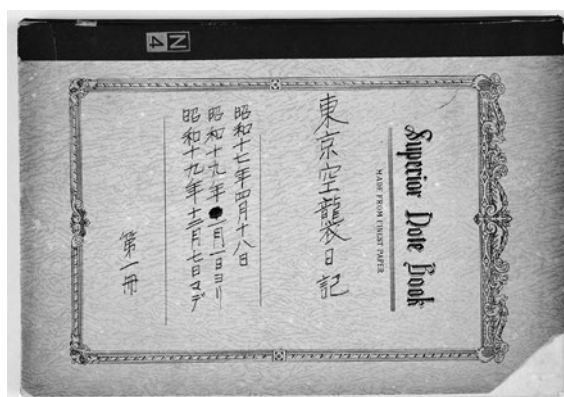 N4
Superior Note Book
MADE FROM FINEST PAPER
東京空襲日記
昭和十七年四月十八日
昭和十九年十一月一日ヨリ
昭和十九年十二月七日マデ
第一冊